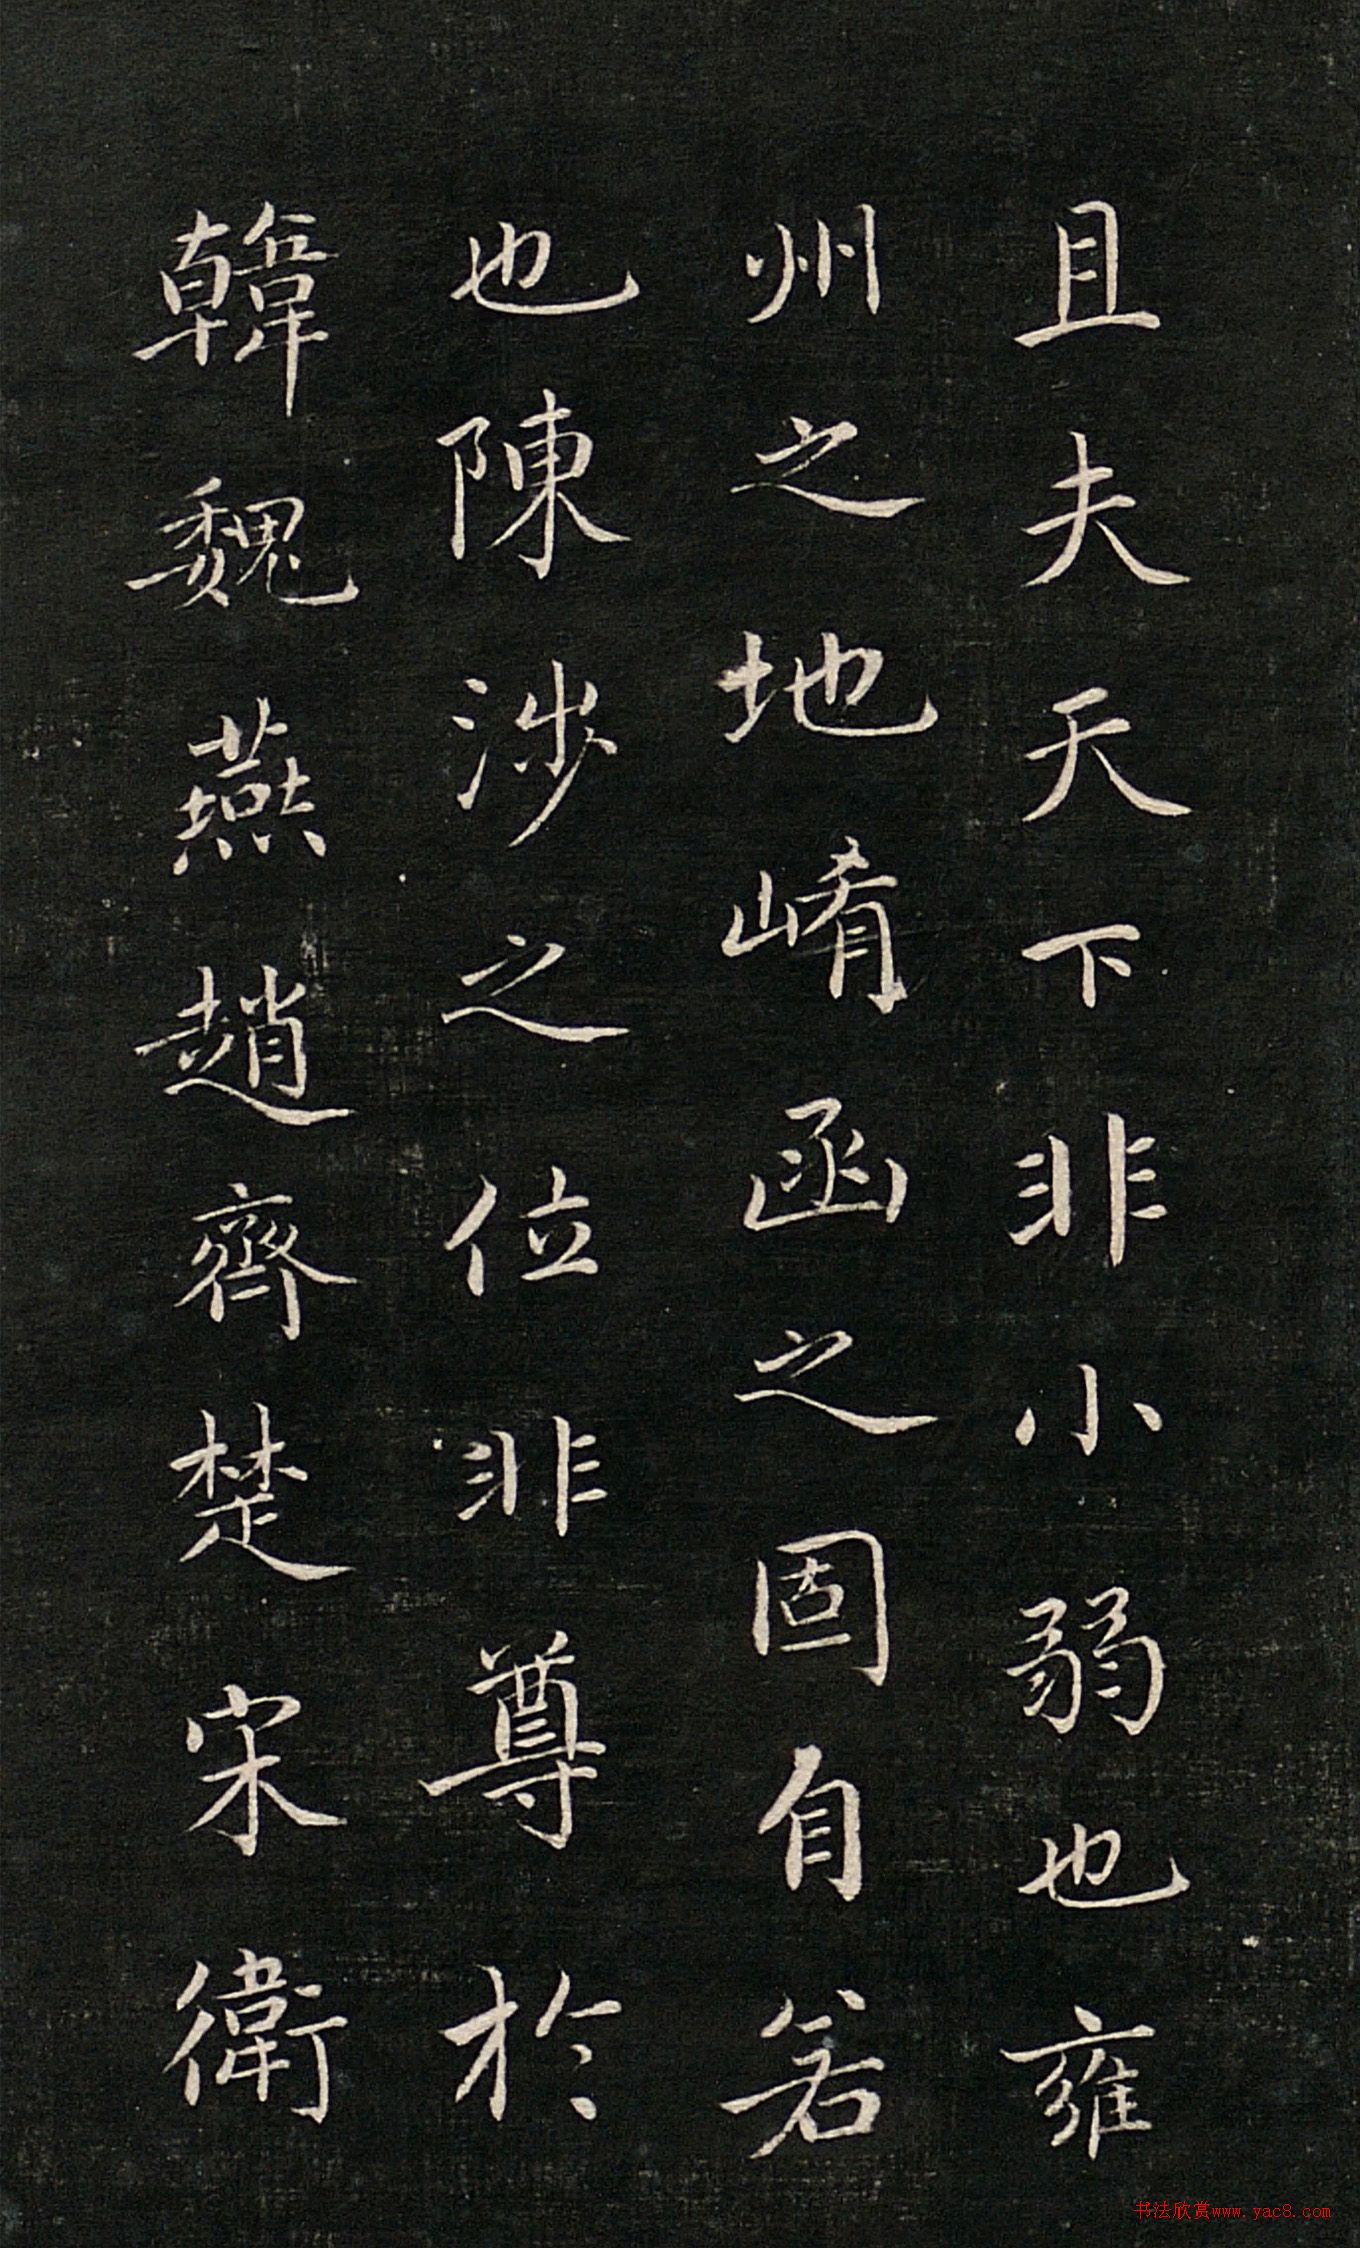 且夫天下非小弱也雍
州之地崤函之固自若
也陳涉之位非尊於
韓魏燕趙齊楚宋衛
书法欣赏www.yac8.com